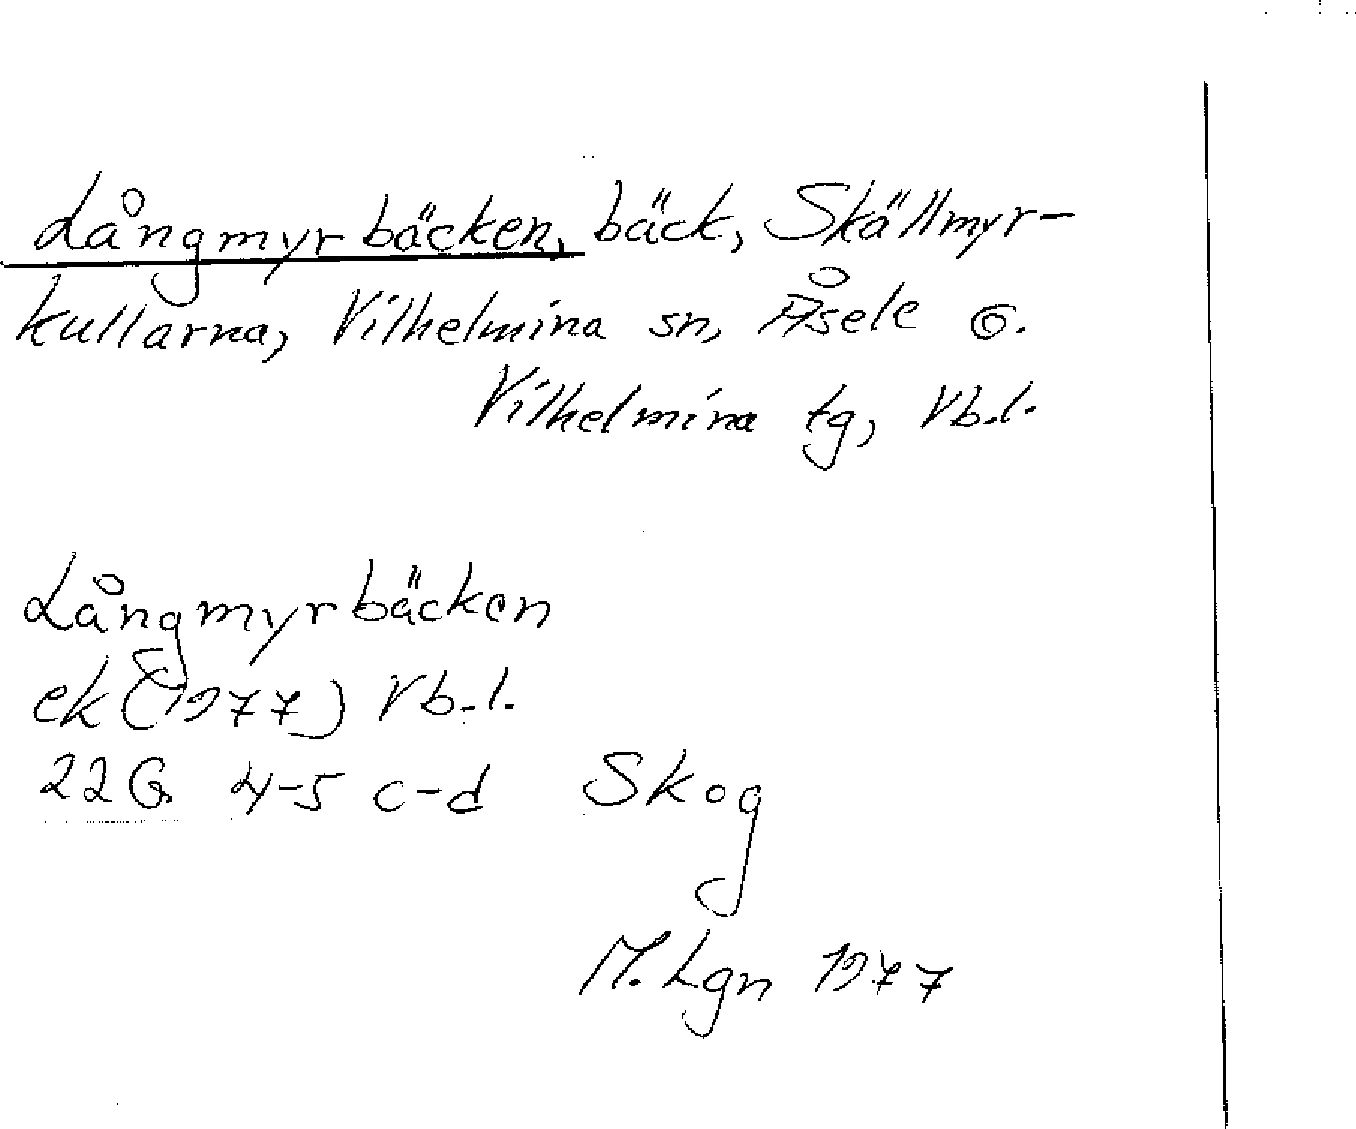 Långmyrbäcken, bäck, Skällmyr-
kullarna, Vilhelmina sn, Åsele
Vilhelmina tg, Vb.l.
Långmyrbäcken
ek (1977) Vb.l.
22G 4-5 c-d Skog
M. Lgn 1977